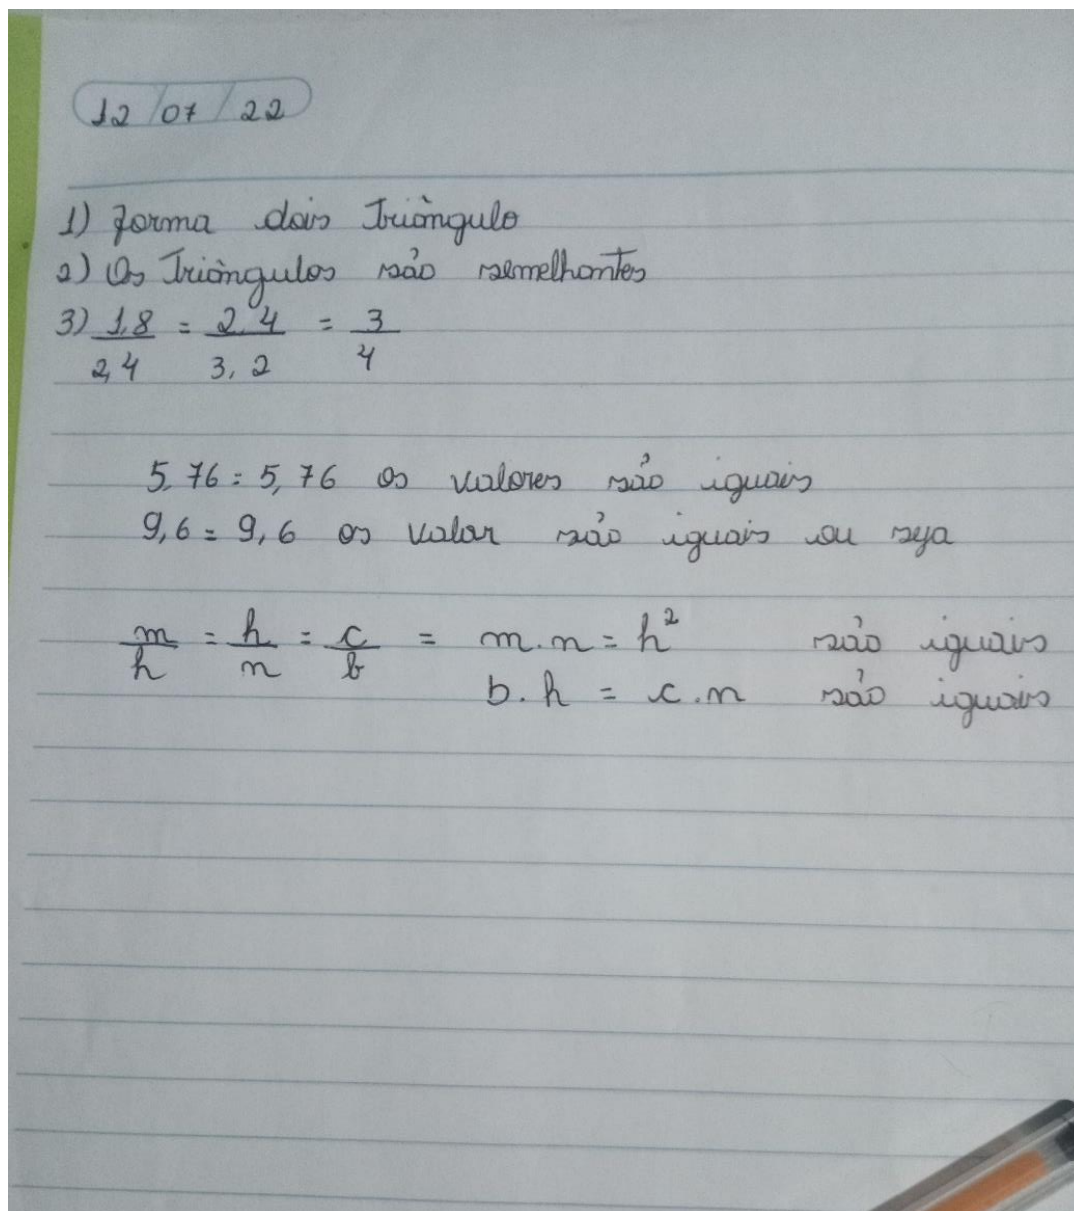 12/07/22
1) forma dois Triângulo
2) Os Triângulos são semelhantes
3) 1,8/2,4 = 2,4/3,2 = 3/4
5,76 = 5,76 os valores são iguais
9,6 = 9,6 os valor são iguais ou seja
m/h = h/n = c/b = m.n = h² são iguais
b.h = c.n são iguais